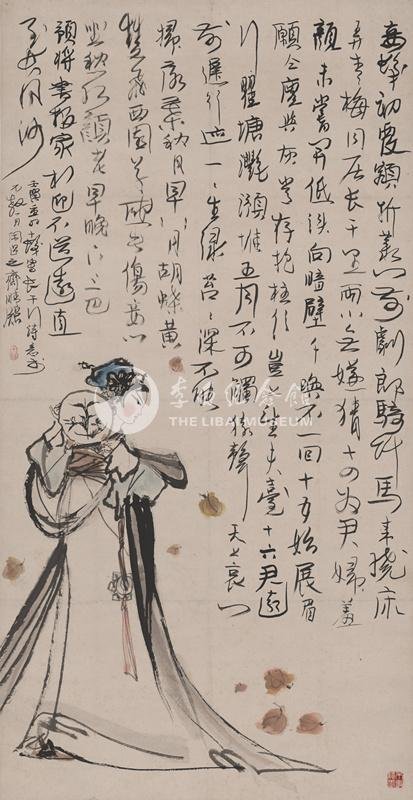 妾髮初覆額折花門前劇郎騎竹馬來繞床
弄青梅同居長干里兩小無嫌猜十四為君婦羞
顏未嘗開低頭向暗壁千喚不一回十五始展眉
願同塵與灰常存抱柱信豈上望夫臺十六君遠
行瞿塘灩澦堆五月不可觸猿聲天上哀門
前遲行跡一一生綠苔苔深不能
掃落葉秋風早八月胡蝶黃
雙飛西園草感此傷妾心
坐愁紅顏老早晚下三巴
預將書報家相迎不道遠直
至長風沙
長干行詩意
李白紀念館
THE LIBAI MUSEUM